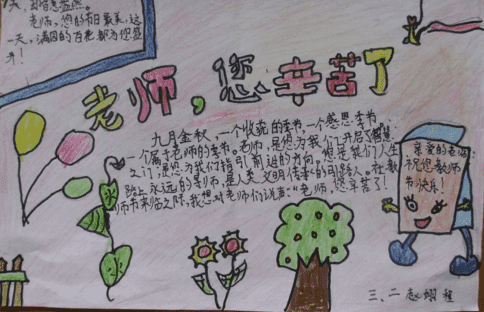 天，
老师，您的节日最美，这
一天，满园的百花都为您盛
开！
老师，您辛苦了
九月金秋，一个收获的季节，一个感恩季节，
一个属于老师的季节。老师，是您为我们开启了智慧
之门；是您为我们指引前进的方向。您是我们人生
路上永远的导师，是人类文明传承的引路人。在教
师节来临之际，我想对老师们说声：“老师，您辛苦了！
亲爱的老师
祝您教师
节快乐！
三、二 赵